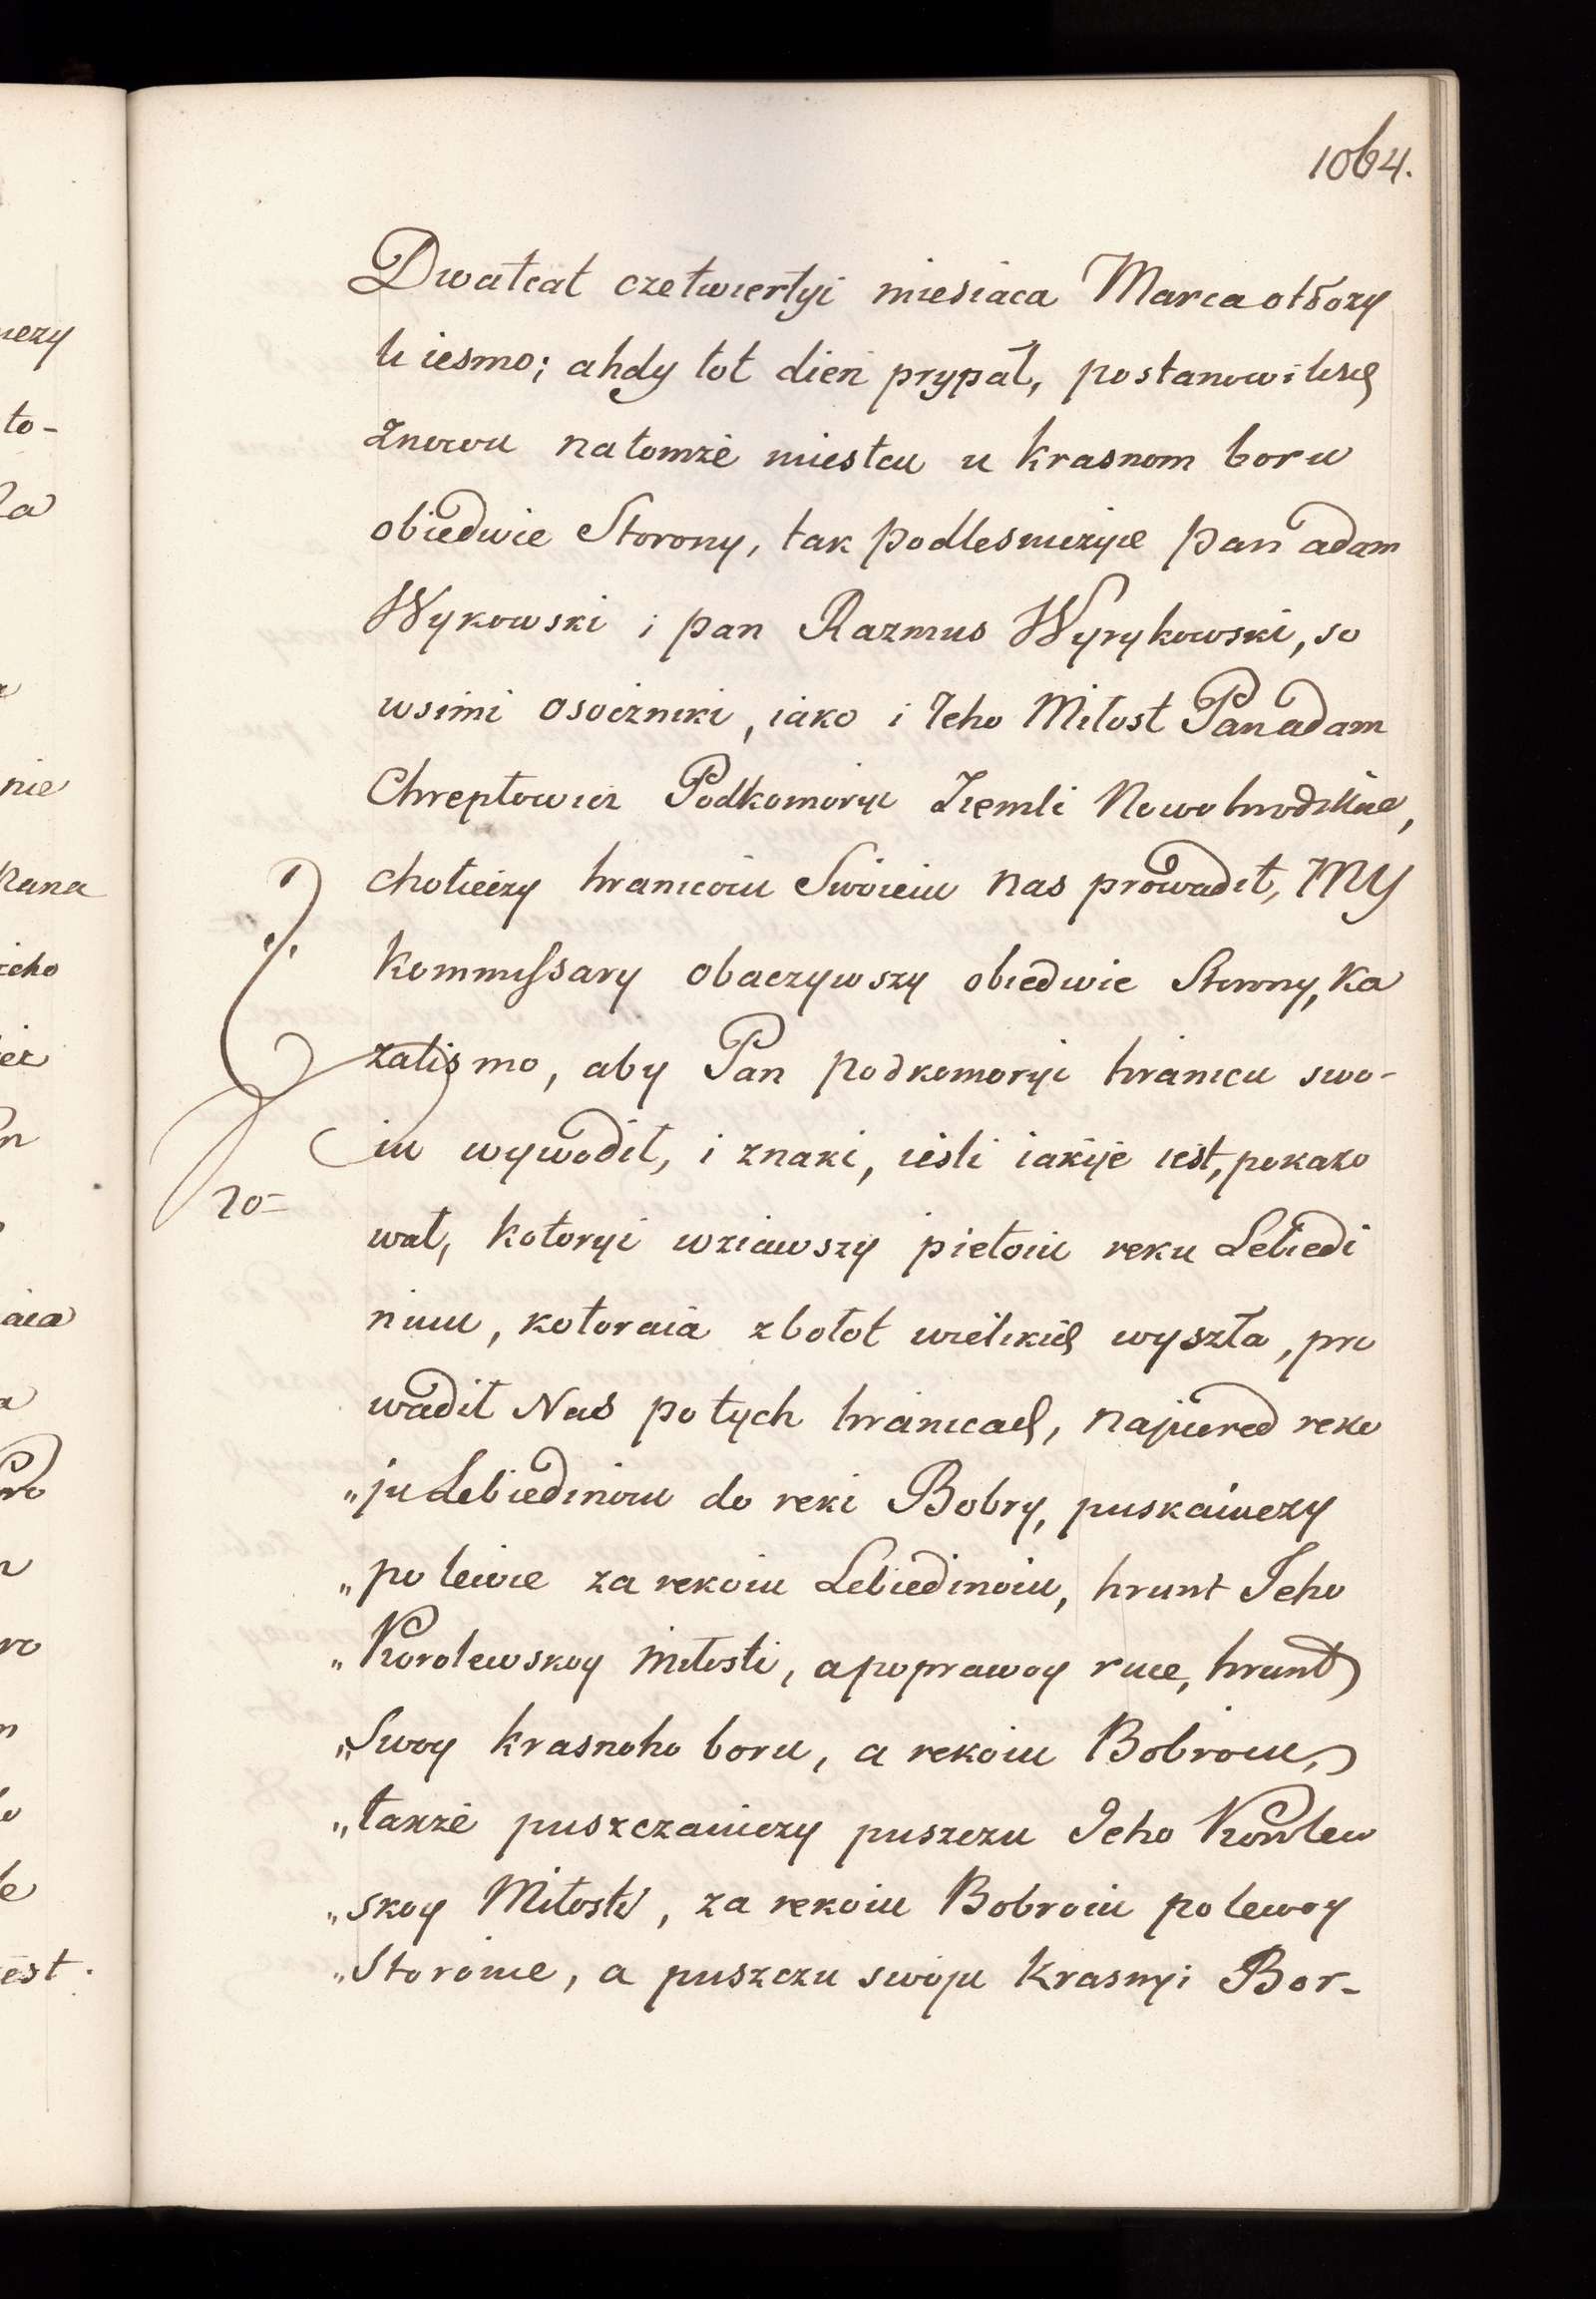 1064.
Dwatcat czetwiertyi miesiaca Marca otłozy
li iesmo; ahdy tot dien prypał, postanowilisię
Znowu natomże miestcu u krasnom boru
obiedwie Storony, tak podlesniczyie pan adam
Wykowski i pan Razmus Wyrykowski, so
wsimi osoczniki, iako i Jeho Miłost Pan adam
Chreptowicz Podkomoryi Ziemli Nowohrodskiie,
chotieczy hranicoiu Swoieiu nas prowadit, MY
Kommissary obaczywszy obiedwie Storony, Ka
zalismo, aby Pan podkomoryi hranicu swo-
iu wywodił, i znaki, iesli iakije iest, pokazo
wał, kotoryi wziawszy pietoiu reku Lebiedi
niuu, kotoraia z bołot wielikich wyszła, pro
wadił Nas po tych hranicach, najpered reko
„ju Lebiedinoiu do reki Bobry, puskaiuczy
„po lewie za rekoiu Lebiedinoiu, hrunt Jeho
„Korolewskoy miłosti, a poprawoy ruce, hrunt
„Swoy krasnoho boru, a rekoiu Bobroiu,
„także puszczaiuczy puszczu Jeho Korolew
„skoy Miłosti, za rekoiu Bobroiu po lewoy
„Storonie, a puszczu swoju Krasnyi Bor-
ro=